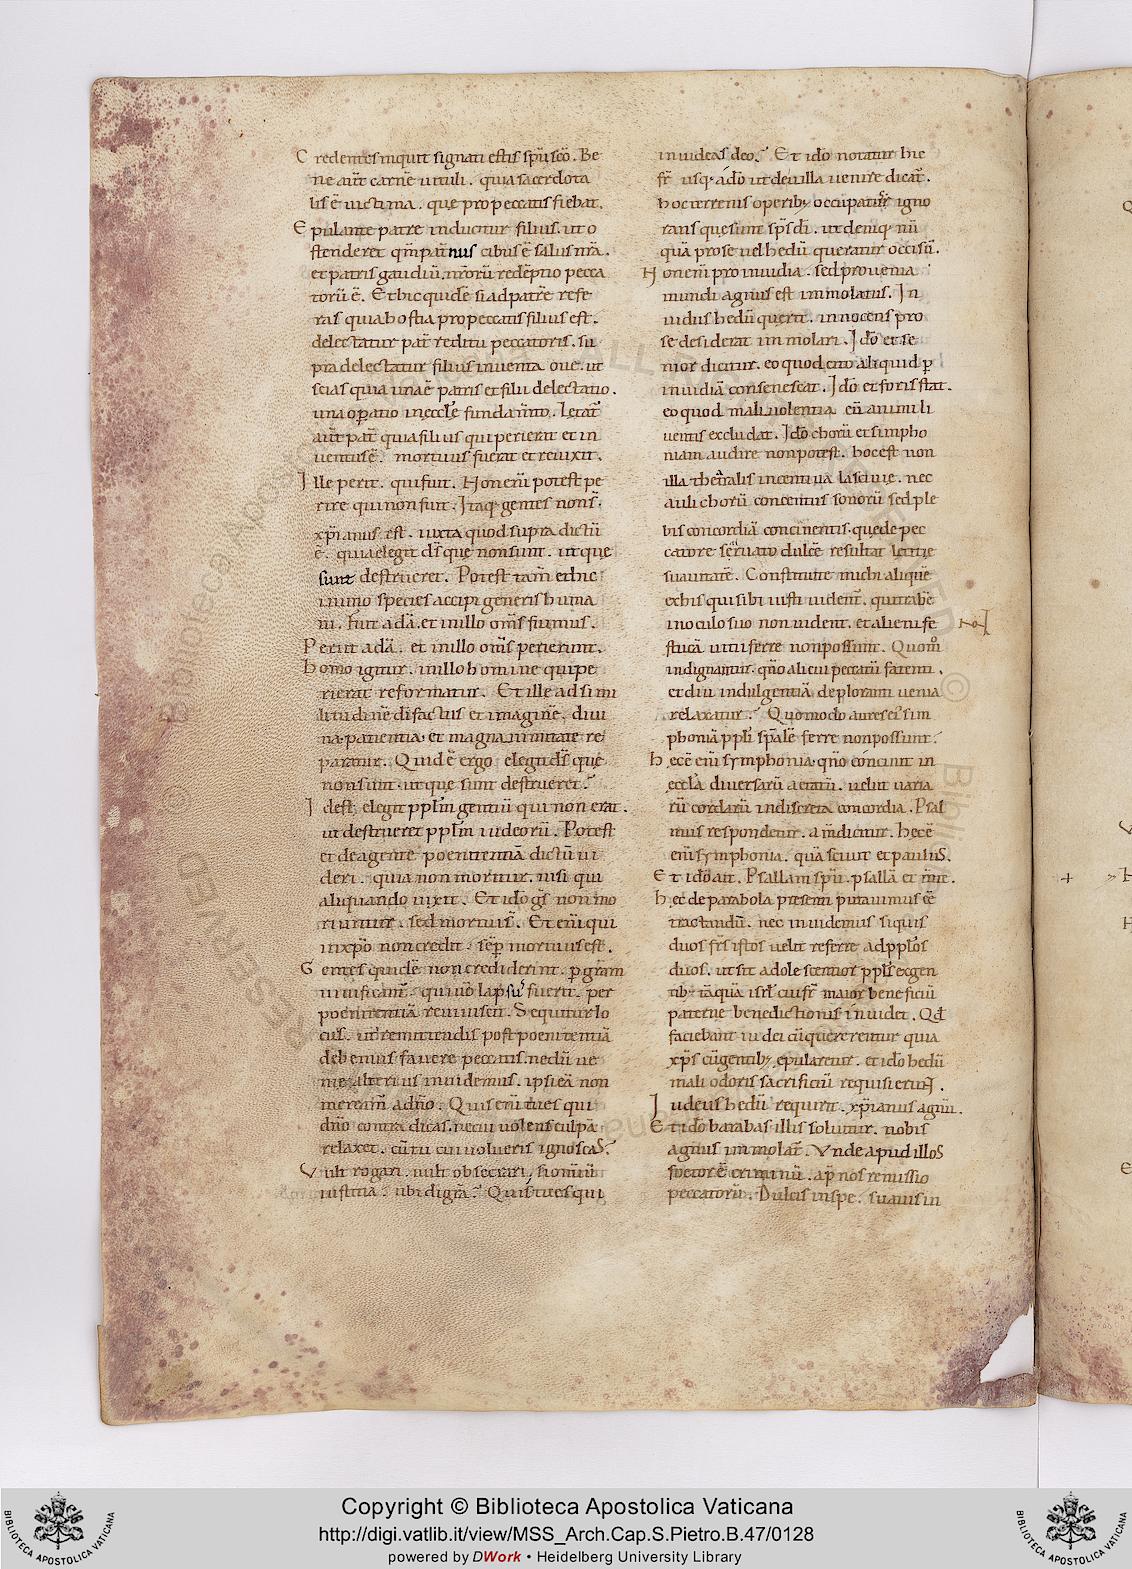 Credentes inquit signati estis spu sco. Be
ne aut carne vituli. quia sacerdota
lis e victima. que pro peccatis fiebat.
Epulante patre inducitur filius. ut o
stenderet qm patnus cibus e salus nra.
et patris gaudiu. nroru redeptio pecca
toru e. Et hic quide si ad patre refe
ras quia hostia pro peccatis filius est.
delectatur pat reditu peccatoris. su
pra delectatur filius inventa ove. ut
scias quia una e patris et filii delectatio.
una opatio in eccle fundamto. Letat
aut pat quia filius qui perierat et in
ventus e. mortuus fuerat et revixit.
Ille perit. qui fuit. Non eni potest pe
rire qui non fuit. Itaq gentes non s.
xpianus est. iuxta quod supra dictu
e. quia elegit ds que non sunt. ut que
sunt destrueret. Potest tam et hic
in uno species accipi generis huma
ni. Fuit ada. et in illo oms fuimus.
Periit ada. et in illo oms perierunt.
homo igitur. in illo homine qui pe
rierat reformatur. Et ille ad simi
litudine di factus et imagine. divi
na patientia et magnanimitate re
paratur. Quid e ergo elegit ds que
non sunt. ut que sunt destrueret?
Id est, elegit pplm gentiu qui non erat.
ut destrueret pplm iudeoru. Potest
et de agente poenitentia dictu vi
deri. quia non moritur. nisi qui
aliquando vixit. Et ido gs non mo
riuntur. sed mortui s. Et eni qui
in xpo non credit. sep mortuus est.
Gentes quide non crediderint. p gram
vivificant. qui vo lapsus fuerit. per
poenitentia reviviscit. Sequitur lo
cus. ut remittendis post poenitentia
debemus favere peccatis. nedu ve
nie alterius invidemus. ipsi ea non
meream a dno. Quis eni tu es qui
dno contra dicas. necui volens culpa
relaxet. cu tu cui volueris ignoscas?
Vult rogari. vult obsecrari. si omiu
iustitia. ubi di gra? Quis tu es qui
invideas deo? Et ido notatur hic
fr usq ado ut de villa venire dicat.
hoc terrenis operib; occupatur igno
rans que sunt sps di. ut deniq nu
qua pro se vel hedu queratur occisu.
Non eni pro invidia. sed pro venia
mundi agnus est immolatus. In
vidus hedu querit. innocens pro
se desiderat immolari. Ido et se
nior dicitur. eo quod cito aliquid p
invidia consenescat. Ido et foris stat.
eo quod malivolentia eu animi li
ventis excludat. Ido choru et simpho
niam audire non potest. hoc est non
illa theatralis incentiva lascivie. nec
auli choru concentus sonoru sed ple
bis concordia concinentis. que de pec
catore servato dulce resultat letitie
suavitate. Constituite michi alique
ex his qui sibi iusti vident. qui trabe
in oculo suo non vident. et alieni fe
stuca vitii ferre non possunt. Quom
indignantur. qno alicui peccatu fatenti.
et diu indulgentia deploranti venia
relaxatur? Quomodo aures ei sim
phonia ppli spale ferre non possunt.
hec e eni symphonia. qno concinit in
eccla diversaru aetatu. velut varia
ru cordaru indiscreta concordia. Psal
mus respondetur. am dicitur. hec e
eni symphonia. qua scivit et paulus.
Et ido ait. Psallam spu. psalla et mte.
hec de parabola presenti putavimus ee
tractandu. nec invidemus siquis
duos frs istos velit referre ad pplos
duos. ut sit adolescentior ppls ex gen
tib; taqua isrl cui fr maior beneficiu
paterne benedictionis invidet. Qd
faciebant iudei cu quererentur quia
xps cu gentib; epularetur. et ido hedu
mali odoris sacrificiu requisierunt.
Iudeus hedu requirit. xpianus agnu.
Et ido barabas illis solvitur. nobis
agnus immolat. Unde apud illos
foetor e criminu. ap nos remissio
peccatoru. Dulcis in spe. suavis in
Copyright © Biblioteca Apostolica Vaticana
http://digi.vatlib.it/view/MSS_Arch.Cap.S.Pietro.B.47/0128
powered by DWork • Heidelberg University Library
BIBLIOTECA APOSTOLICA VATICANA
BIBLIOTECA APOSTOLICA VATICANA